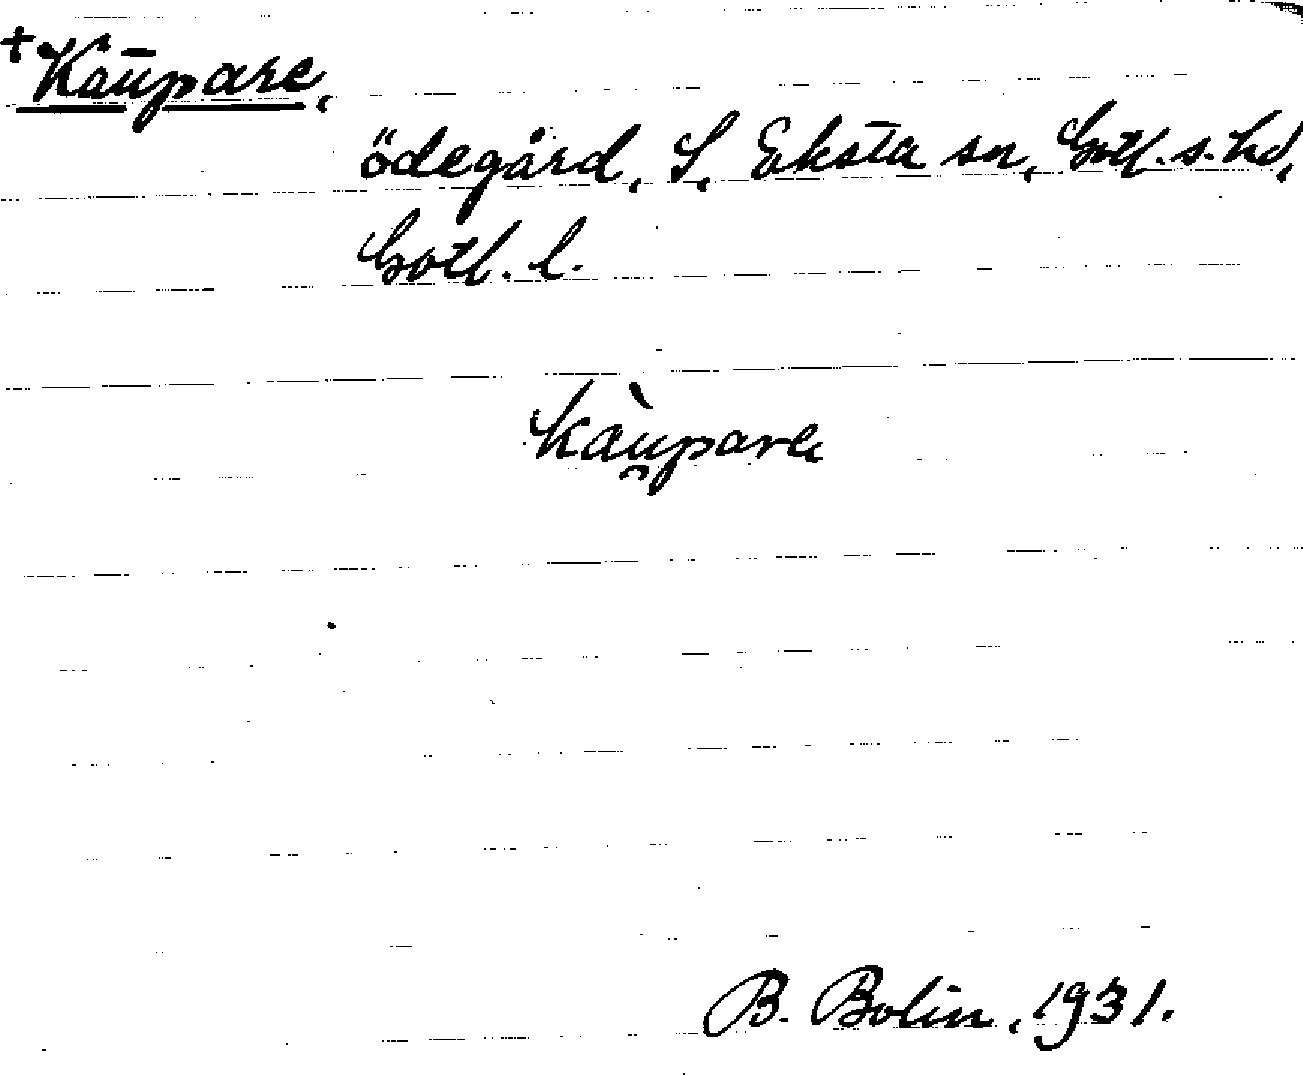 + Kaupare,
ödegård, S, Eksta sn, Gotl. s. hd,
Gotl. l.
kàu̯pare
B. Bolin, 1931.